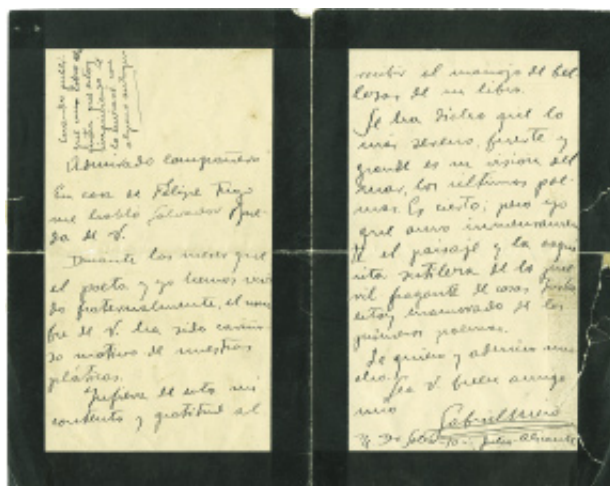 Cuando publi-
que un libro de
que estoy
imprimiendo
lo enviaré con
alguno antiguo
Admirado compañero
En casa de Felipe Trigo
me habló Salvador Rue-
da de V.
Durante los meses que
el poeta y yo hemos vivi-
do fraternalmente, el nom-
bre de V. ha sido cariño-
so motivo de nuestras
pláticas.
Infiera de esto mi
contento y gratitud al
recibir el manojo de bel-
lezas de su libro.
Se ha dicho que lo
más sereno, fuerte y
grande es su visión del
mar, los últimos poe-
mas. Es cierto; pero yo
que amo inmensamen-
te el paisaje y la exqui-
sita sutileza de lo
fragante de cosas
estoy enamorado de los
primeros poemas.
Le quiero y admiro mu-
cho.
Sea V. buen amigo
mío
Gabriel Miró
Julio - Alicante